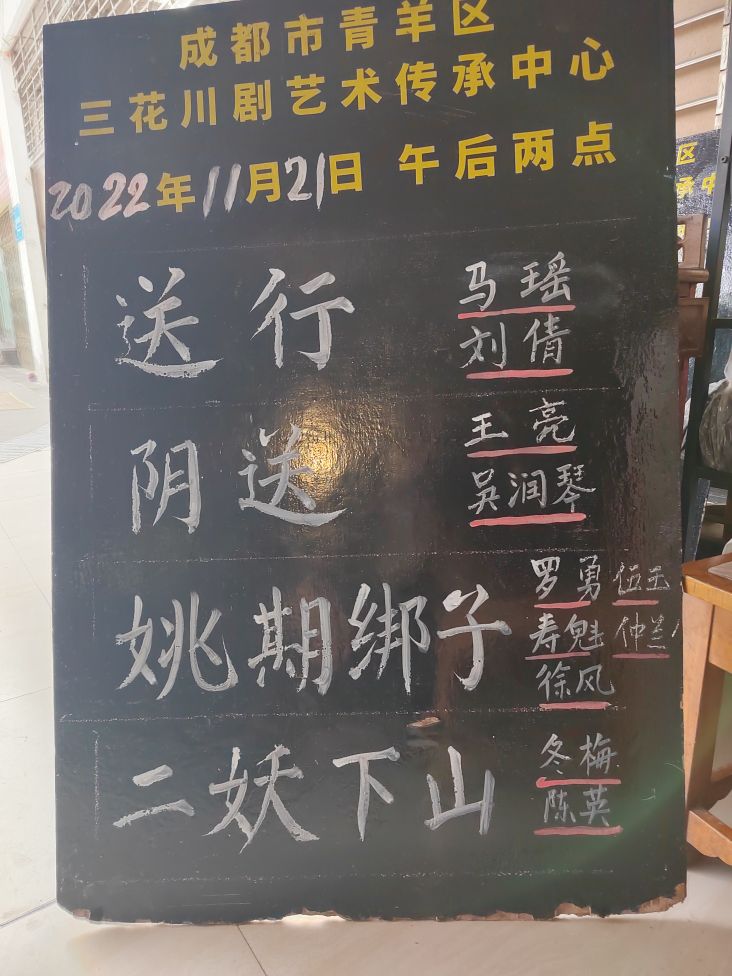 成都市青羊区
三花川剧艺术传承中心
2022年11月21日 午后两点
送行 马瑶
刘倩
阴送 王亮
吴润琴
姚期绑子 罗勇 伍玉
寿魁 仲兰
徐风
二妖下山 冬梅
陈英
区
承中